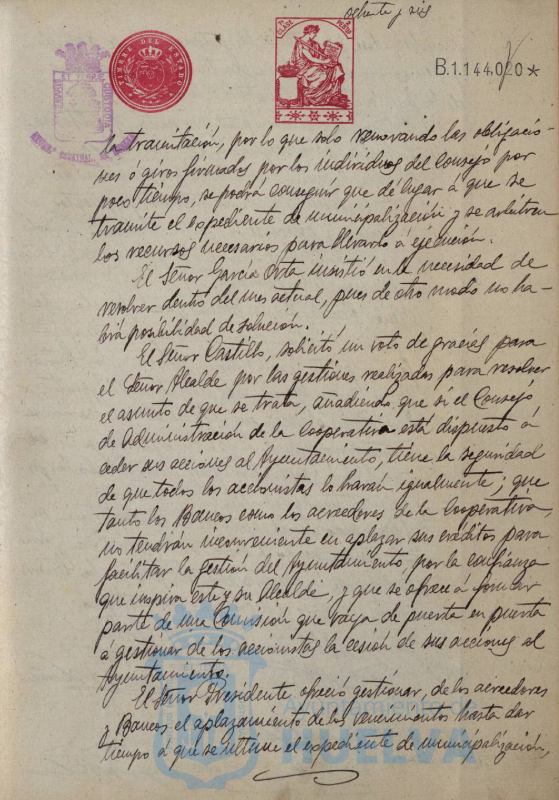 ochenta y seis
TIMBRE DEL ESTADO
CLASE
B.1.144.020*
la tramitación, por lo que solo renovando las obligacio-
nes ó giros firmados por los individuos del Consejo por
poco tiempo, se podrá conseguir que de lugar á que se
tramite el expediente de municipalización y se arbitren
los recursos necesarios para llevarlo á ejecución.
El Señor García Orta insistió en la necesidad de
resolver dentro del mes actual, pues de otro modo no ha-
brá posibilidad de solución.
El Señor Castillo, solicitó un voto de gracias para
el Señor Alcalde por las gestiones realizadas para resolver
el asunto de que se trata, añadiendo, que si el Consejo
de Administración de la Cooperativa está dispuesto á
ceder sus acciones al Ayuntamiento, tiene la seguridad
de que todos los accionistas lo harán igualmente; que
tanto los Bancos como los acreedores de la Cooperativa,
no tendrán inconveniente en aplazar sus créditos para
facilitar la gestión del Ayuntamiento, por la confianza
que inspira este y su Alcalde, y que se ofrece á formar
parte de una Comisión que vaya de puerta en puerta
a gestionar de los accionistas la cesión de sus acciones al
Ayuntamiento.
El Señor Presidente ofreció gestionar, de los acreedores
y Bancos el aplazamiento de los vencimientos hasta dar
tiempo á que se ultime el expediente de municipalización,
Ayuntamiento de
HUELVA